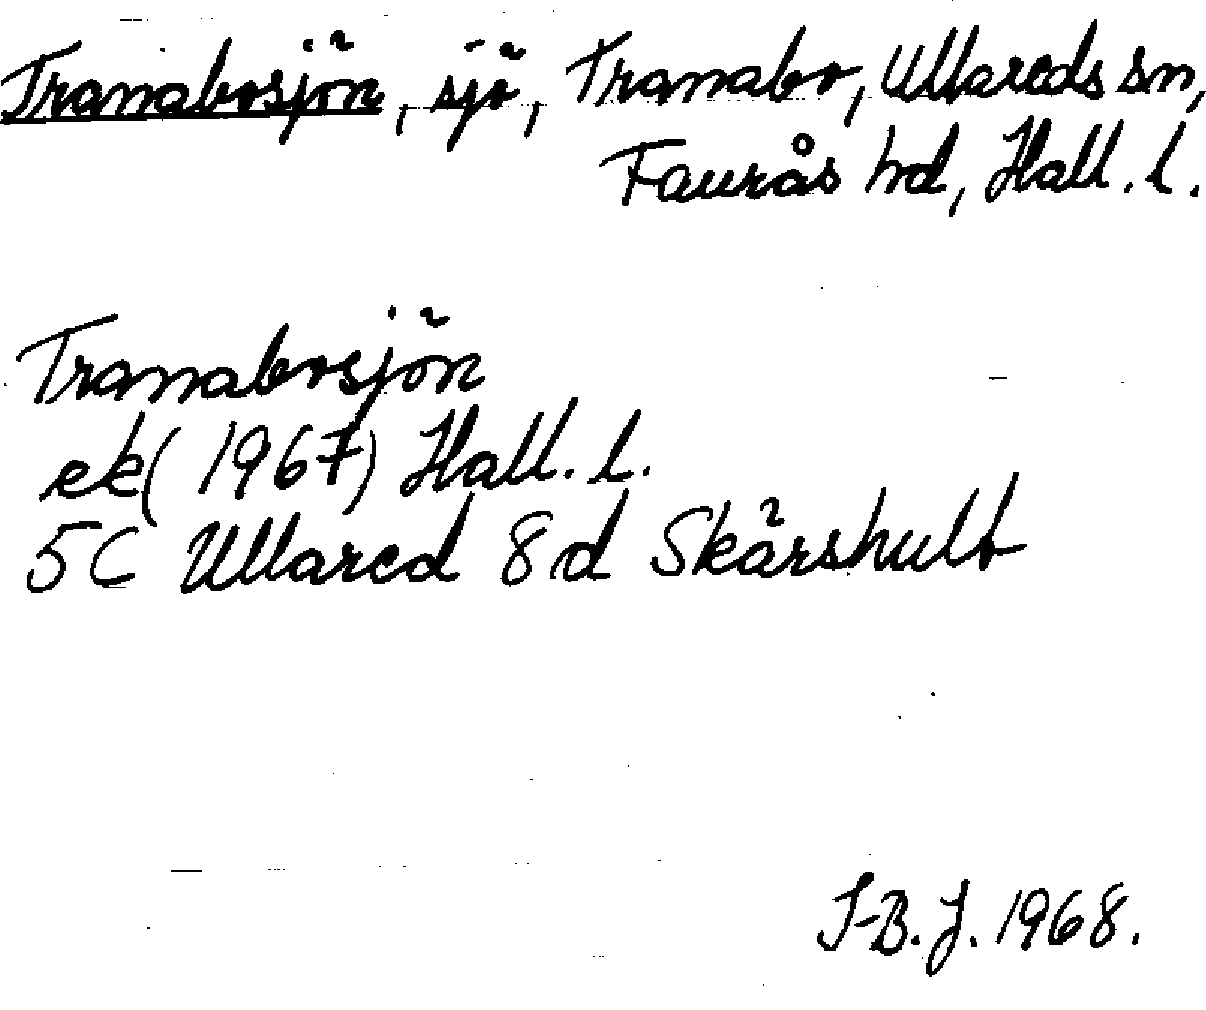 Tranabosjön, sjö, Tranabo, Ullareds sn,
Faurås hd, Hall. l.
Tranabosjön
ek (1967) Hall. l.
5C Ullared 8d Skärshult
I-B. J. 1968.